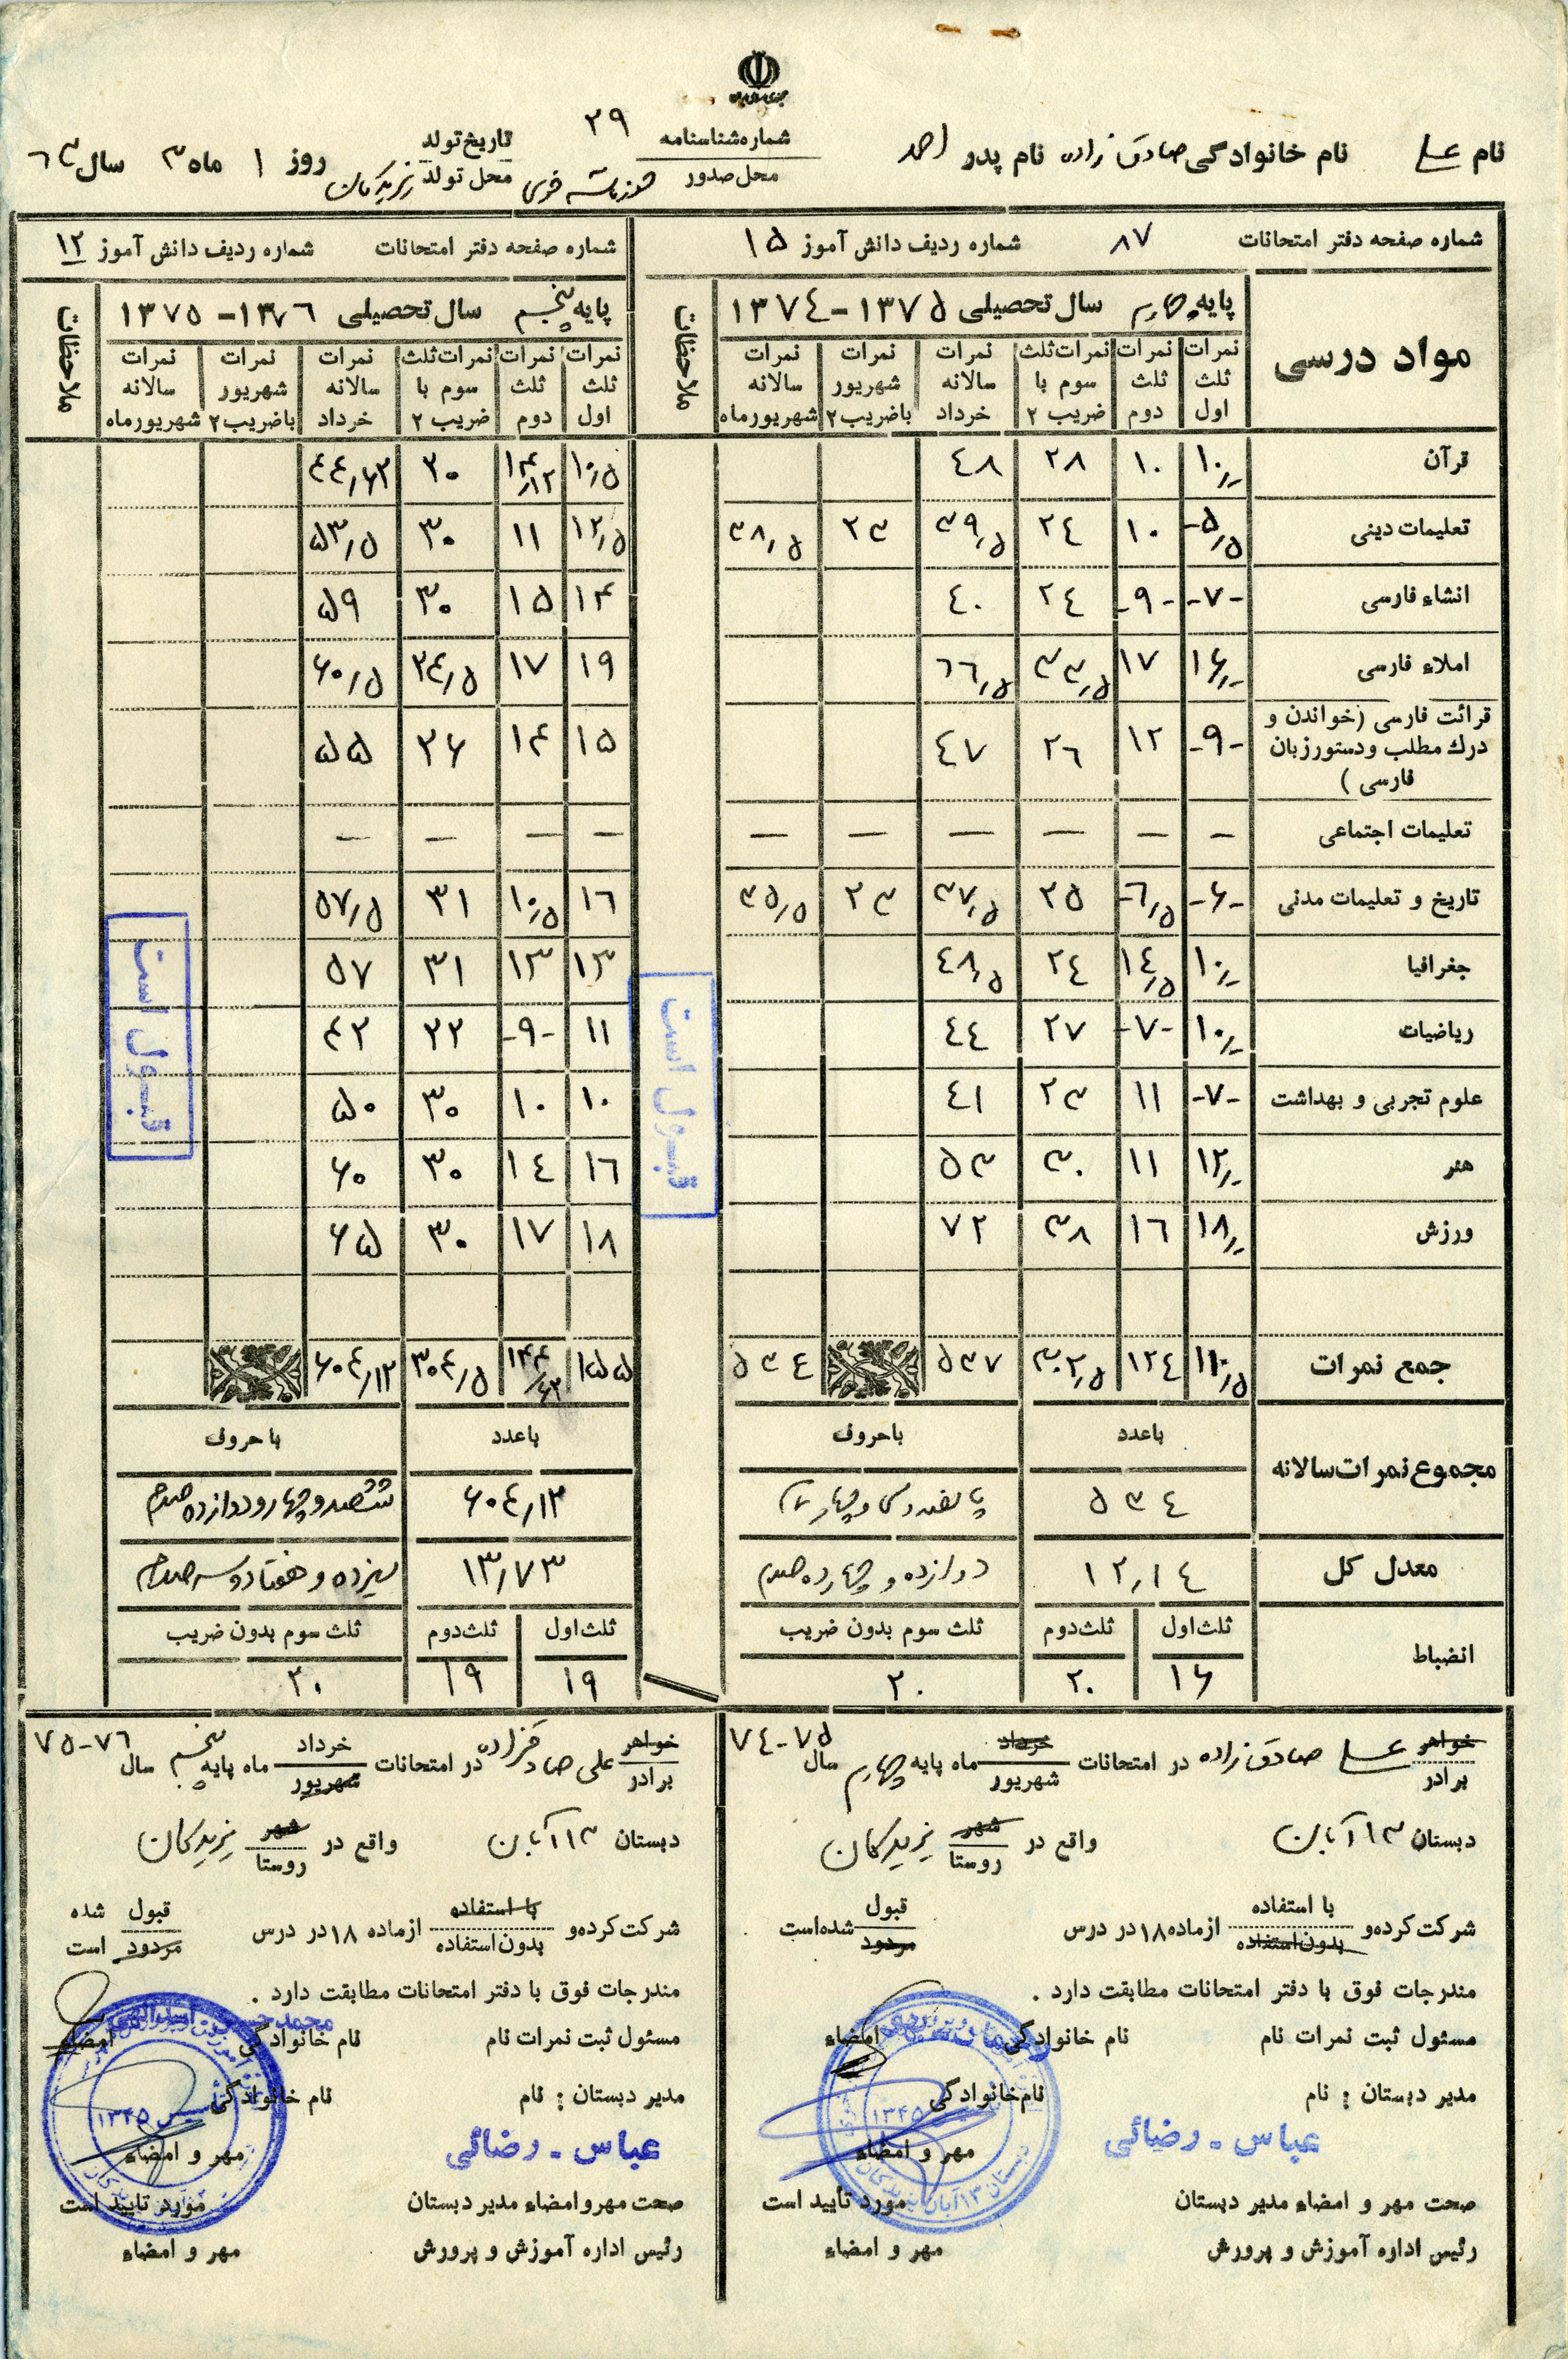 نام علی نام خانوادگی صادق زاده نام پدر احمد شماره شناسنامه ۲۹ محل صدور تاریخ تولد روز ۱ ماه ۳ سال ۶۳ محل تولد
شماره صفحه دفتر امتحانات ۸۷ شماره ردیف دانش آموز ۱۵
شماره صفحه دفتر امتحانات شماره ردیف دانش آموز ۱۲
مواد درسی پایه چهارم سال تحصیلی ۱۳۷۵-۱۳۷۴ ملاحظات پایه پنجم سال تحصیلی ۱۳۷۶-۱۳۷۵ ملاحظات
نمرات ثلث اول نمرات ثلث دوم نمرات ثلث سوم با ضریب ۲ نمرات سالانه خرداد نمرات شهریور باضریب ۲ نمرات سالانه شهریورماه
نمرات ثلث اول نمرات ثلث دوم نمرات ثلث سوم با ضریب ۲ نمرات سالانه خرداد نمرات شهریور باضریب ۲ نمرات سالانه شهریورماه
قرآن ۱۰٫- ۱۰ ۲۸ ۴۸ ۱۰٫۵ ۱۴٫۱۲ ۲۰ ۴۴٫۶۲
تعلیمات دینی -۵٫۵ ۱۰ ۲۴ ۳۹٫۵ ۲۳ ۳۸٫۵ ۱۲٫۵ ۱۱ ۳۰ ۵۳٫۵
انشاء فارسی -۷- -۹- ۲۴ ۴۰ ۱۴ ۱۵ ۳۰ ۵۹
املاء فارسی ۱۶٫- ۱۷ ۳۳٫۵ ۶۶٫۵ ۱۹ ۱۷ ۲۴٫۵ ۶۰٫۵
قرائت فارسی (خواندن و
درك مطلب ودستورزبان
فارسی ) -۹- ۱۲ ۲۶ ۴۷ ۱۵ ۱۴ ۲۶ ۵۵
تعلیمات اجتماعی — — — — — — — — — —
تاریخ و تعلیمات مدنی -۶- -۶٫۵ ۲۵ ۳۷٫۵ ۲۳ ۳۵٫۵ ۱۶ ۱۰٫۵ ۳۱ ۵۷٫۵
جغرافیا ۱۰٫- ۱۴٫۵ ۲۴ ۴۸٫۵ ۱۳ ۱۳ ۳۱ ۵۷
ریاضیات ۱۰٫- -۷- ۲۷ ۴۴ ۱۱ -۹- ۲۲ ۴۲
علوم تجربی و بهداشت -۷- ۱۱ ۲۳ ۴۱ ۱۰ ۱۰ ۳۰ ۵۰
هنر ۱۲٫- ۱۱ ۳۰ ۵۳ ۱۶ ۱۴ ۳۰ ۶۰
ورزش ۱۸٫- ۱۶ ۳۸ ۷۲ ۱۸ ۱۷ ۳۰ ۶۵
قبول است
قبول است
جمع نمرات ۱۱۰٫۵ ۱۲۴ ۳۰۲٫۵ ۵۳۷ ۵۳۴ ۱۵۵ ۱۴۴٫۶۲ ۳۰۴٫۵ ۶۰۴٫۱۲
مجموع نمرات سالانه باعدد باحروف باعدد باحروف
۵۳۴ پانصد و سی و چهار ۶۰۴٫۱۲ ششصد و چهار و دوازده صدم
معدل کل ۱۲٫۱۴ دوازده و چهارده صدم ۱۳٫۷۳ سیزده و هفتاد و سه صدم
انضباط ثلث اول ثلث دوم ثلث سوم بدون ضریب ثلث اول ثلث دوم ثلث سوم بدون ضریب
۱۶ ۲۰ ۲۰ ۱۹ ۱۹ ۲۰
خواهر برادر علی صادق زاده در امتحانات خرداد شهریور ماه پایه چهارم سال ۷۴-۷۵
دبستان ۱۳ آبان واقع در شهر روستا
شرکت کرده و با استفاده بدون استفاده ازماده ۱۸ در درس قبول مردود شده است
مندرجات فوق با دفتر امتحانات مطابقت دارد .
مسئول ثبت نمرات نام نام خانوادگی امضاء
مدیر دبستان : نام نام خانوادگی
عباس - رضائی مهر و امضاء
صحت مهر و امضاء مدیر دبستان مورد تایید است
رئیس اداره آموزش و پرورش مهر و امضاء
خواهر برادر علی صادقزاده در امتحانات خرداد شهریور ماه پایه پنجم سال ۷۵-۷۶
دبستان ۱۳ آبان واقع در شهر روستا
شرکت کرده و با استفاده بدون استفاده ازماده ۱۸ در درس قبول مردود شده است
مندرجات فوق با دفتر امتحانات مطابقت دارد .
مسئول ثبت نمرات نام نام خانوادگی امضاء
مدیر دبستان : نام نام خانوادگی
عباس - رضائی مهر و امضاء
صحت مهر و امضاء مدیر دبستان مورد تایید است
رئیس اداره آموزش و پرورش مهر و امضاء